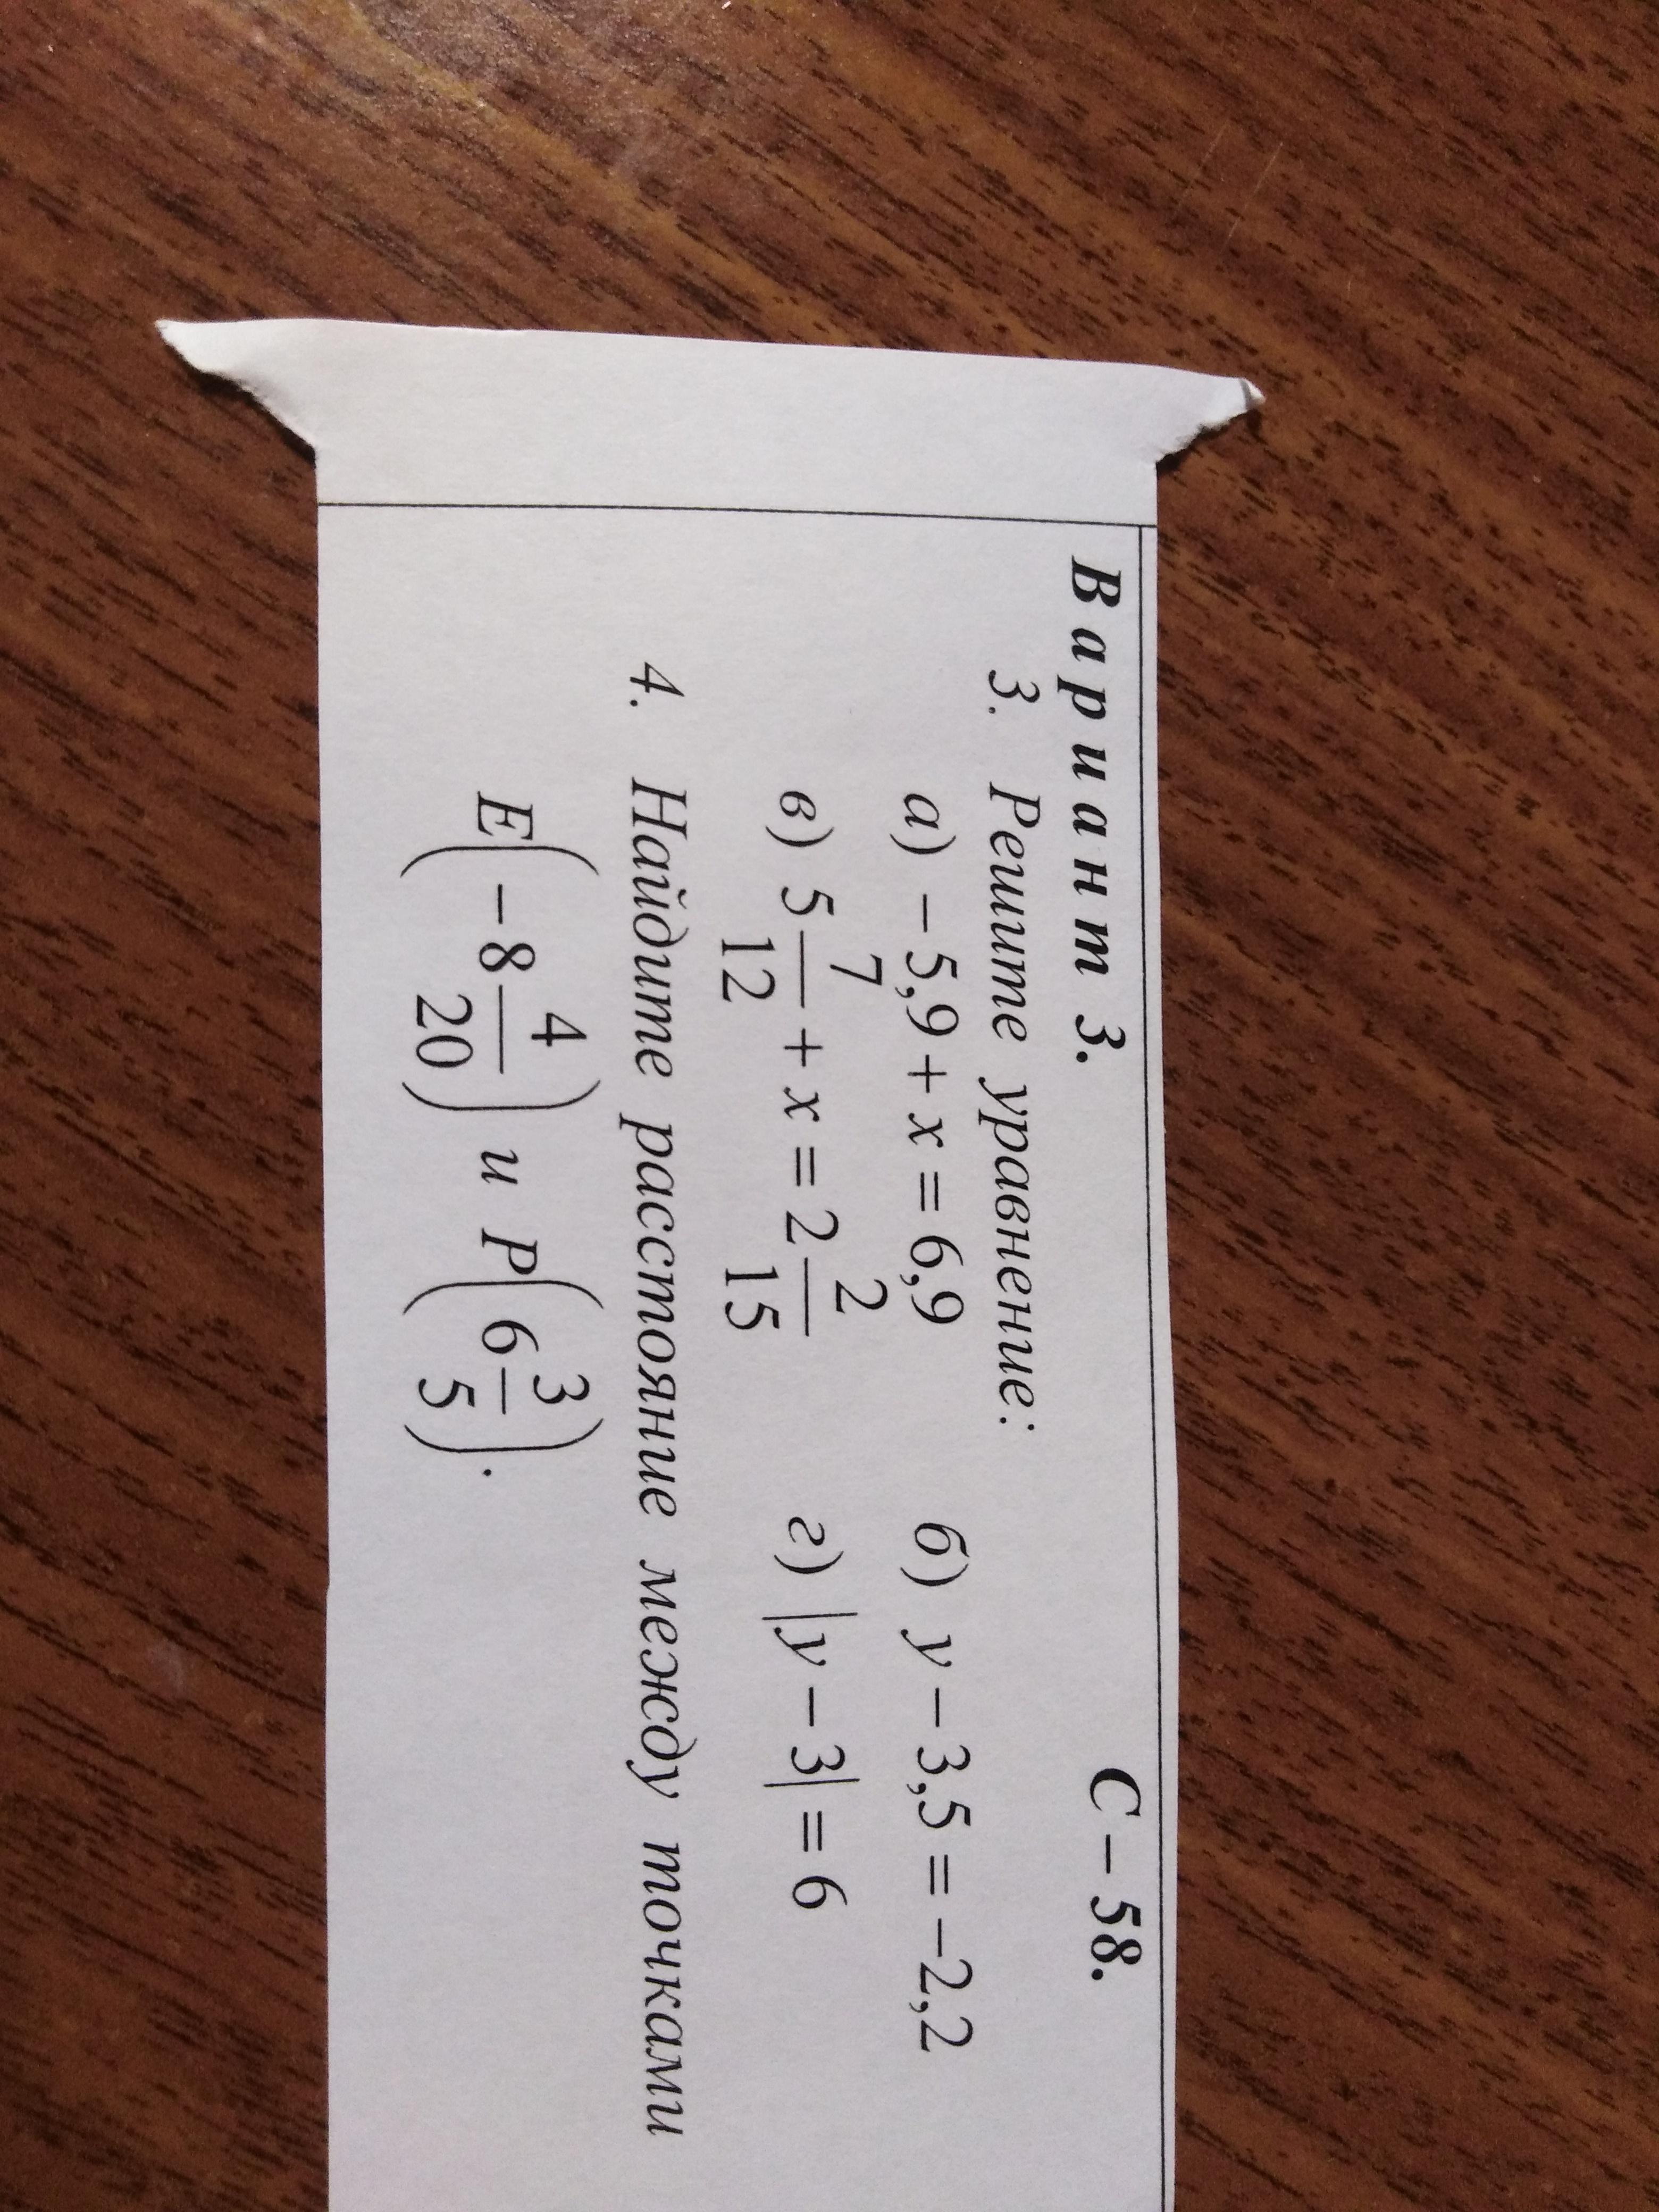 Вариант 3. С – 58.
3. Решите уравнение:
а) –5,9 + x = 6,9 б) y – 3,5 = –2,2
в) 5 7/12 + x = 2 2/15 г) |y – 3| = 6
4. Найдите расстояние между точками
E(–8 4/20) и P(6 3/5).